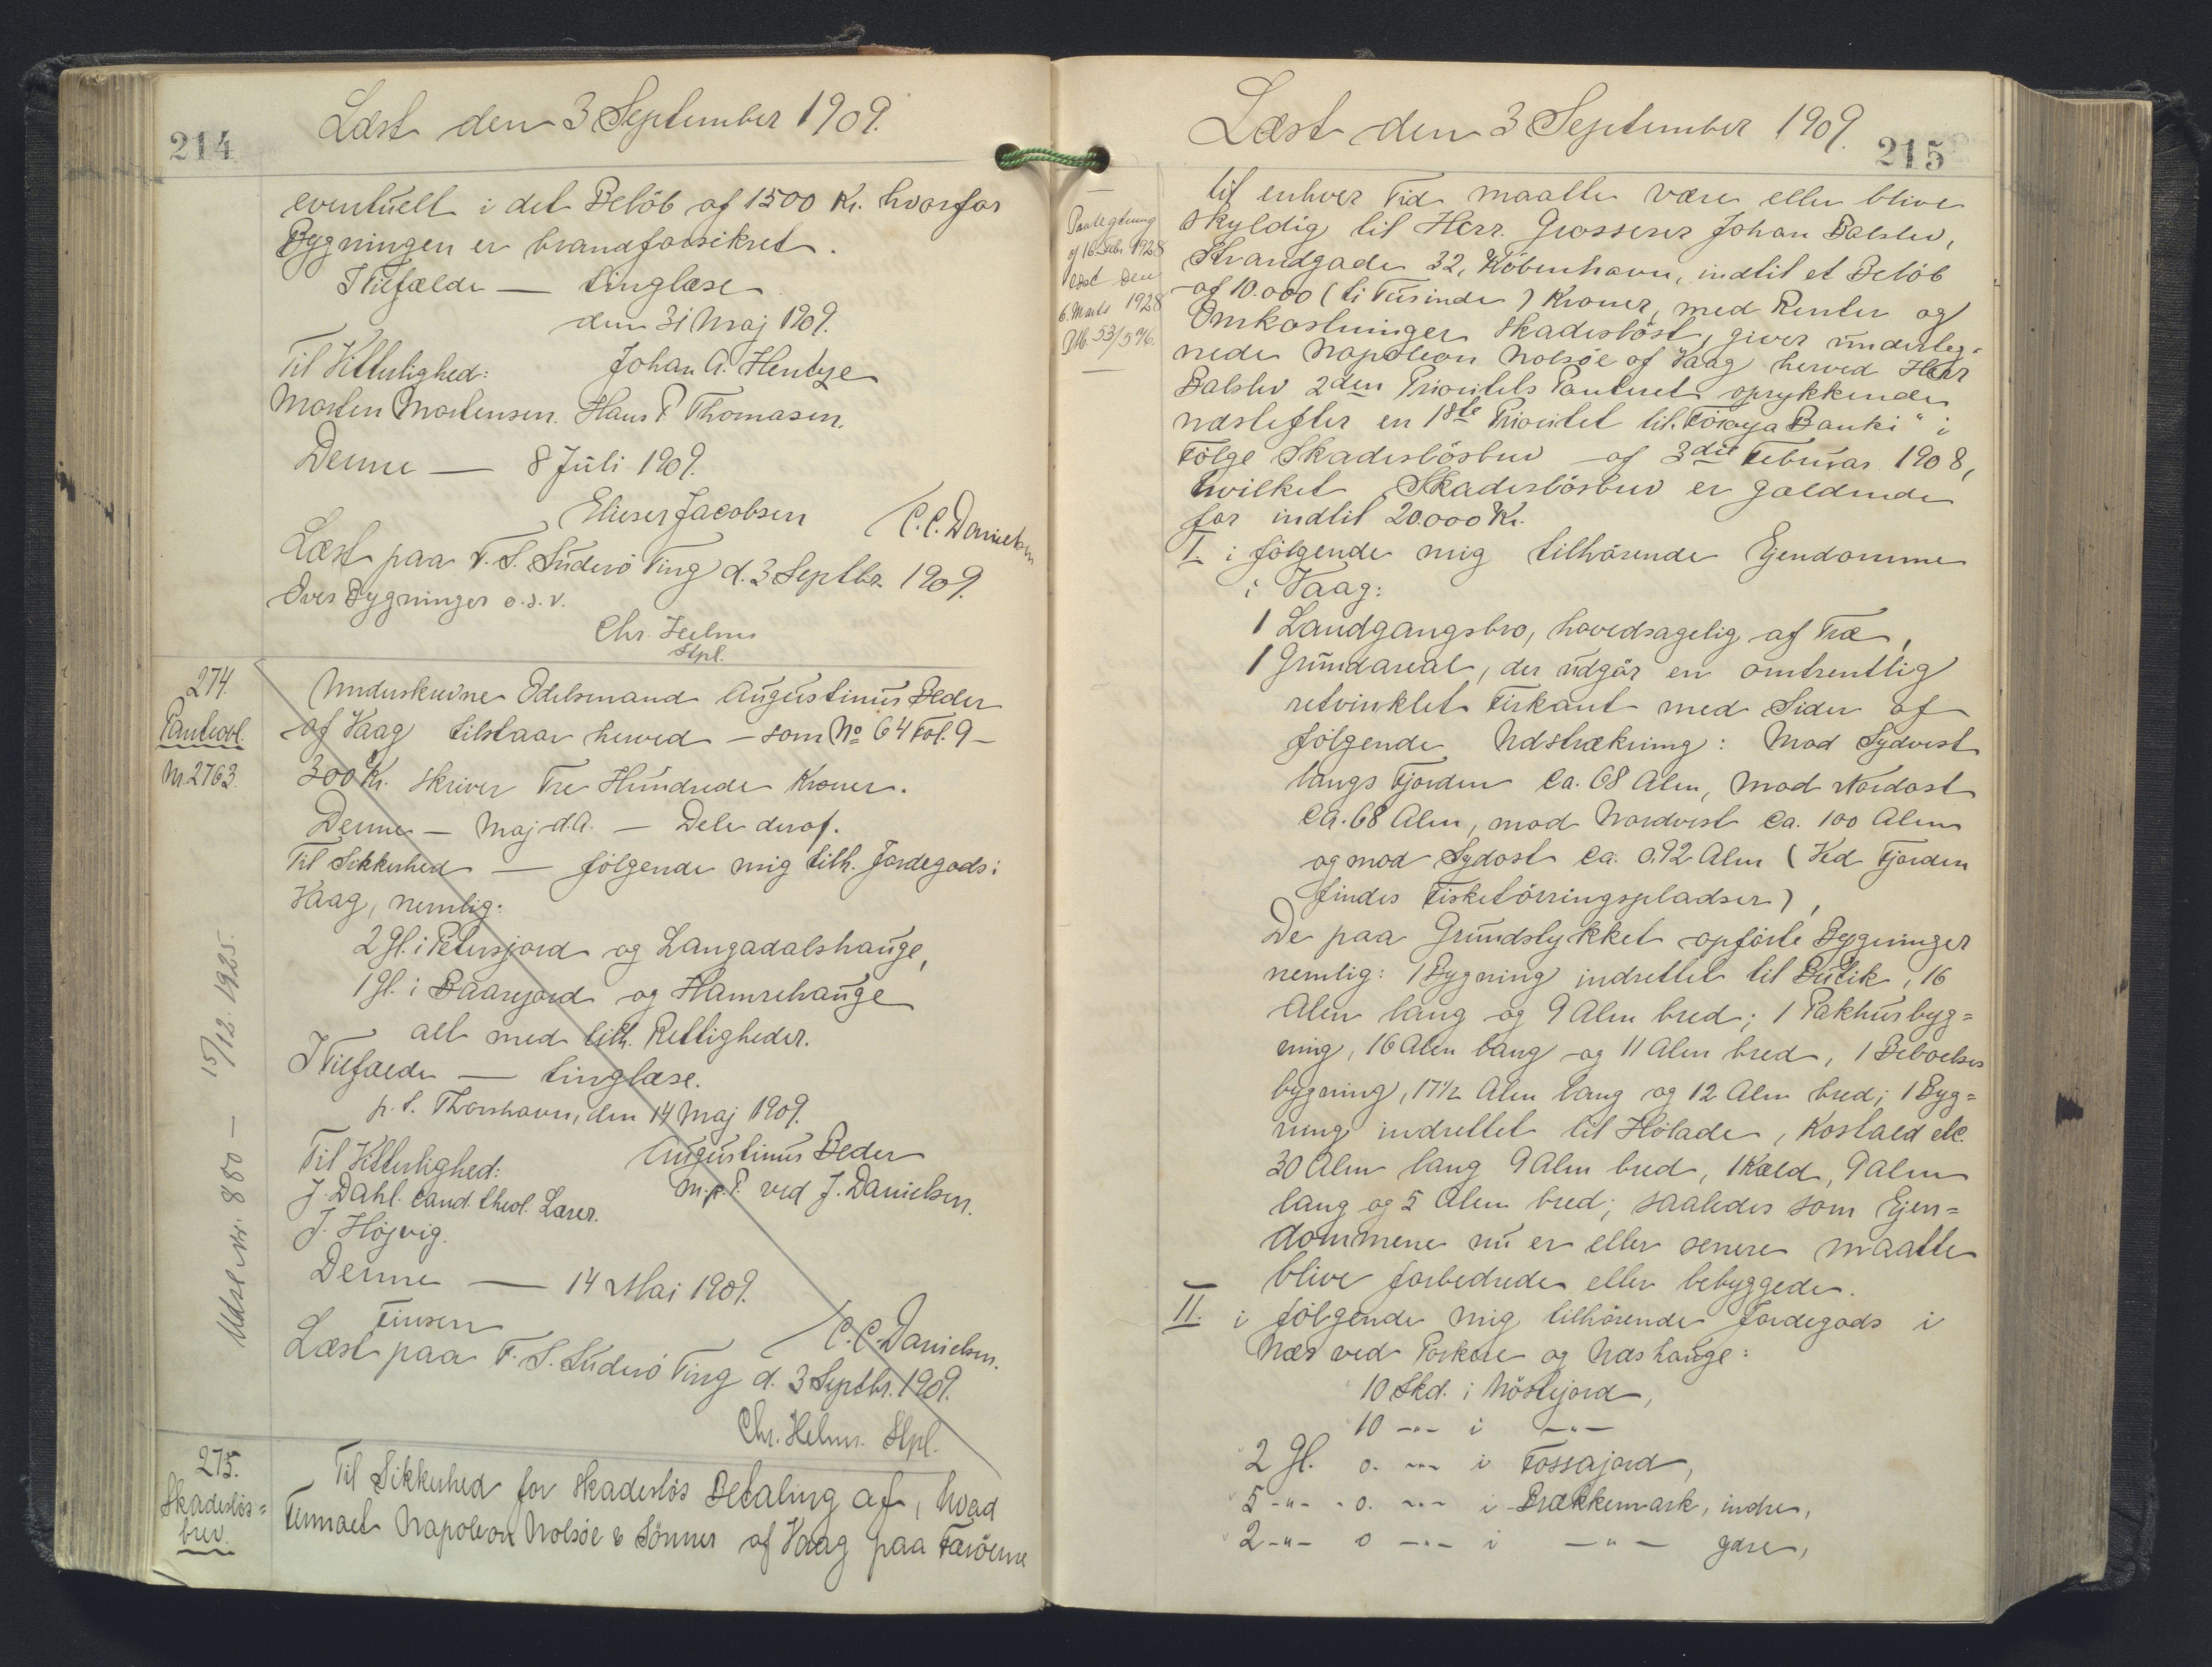 214
Læst den 3 September 1909.
eventuelt i det Beløb af 1500 Kr. hvorfor
Bygningen er brandforsikret.
I Tilfælde — tinglæse
den 31 Maj 1909.
Til Vitterlighed: Johan A. Hentze
Morten Mortensen. Hans P. Thomasen.
Denne — 8 Juli 1909.
Elieser Jacobsen C.C. Danielsen
Læst paa F. S. Suderö Ting d. 3 Septbr. 1909.
Over Bygninger o.s.v.
Chr. Helms
Stpl.
274.
Panteobl.
Nr. 2763.
Underskrevne Odelsmand Augustinus Beder
af Vaag tilstaar herved — som No 64 Fol. 9 —
300 Kr. skriver Tre Hundrede Kroner.
Denne — Maj d.A. — Dele deraf.
Til Sikkerhed — følgende mig tilh. Jordegods i
Vaag, nemlig:
2 Gl. i Petersjord og Langadalshauge,
1 Gl. i Baarejord og Hamrehauge
alt med tilh. Rettigheder.
I Tilfælde — tinglæse.
p. t. Thorshavn, den 14 Maj 1909.
Til Vitterlighed: Augustinus Beder
J. Dahl. cand. theol. Lærer. m.p.P. ved J. Danielsen.
J. Højvig.
Denne — 14 Mai 1909.
Finsen C.C. Danielsen.
Læst paa F. S. Suderö Ting d. 3 Septbr. 1909.
Chr. Helms. Stpl.
Udsl. Nr. 880 — 15/12. 1925.
275.
Skadesløs=
brev.
Til Sikkerhed for skadesløs Betaling af, hvad
Firmaet Napoleon Nolsøe & Sønner af Vaag paa Færøerne
Læst den 3 September 1909.
215
Paategning
af 16. Febr. 1928
læst den
6. Marts 1928
Ptb. 53/576.
til enhver Tid maatte være eller blive
skyldig til Herr. Grosserer Johan Balslev,
Strandgade 32, København, indtil et Beløb
af 10.000 (ti Tusinde) Kroner, med Renter og
Omkostninger skadesløst, giver underteg=
nede Napoleon Nolsøe af Vaag herved Herr
Balslev 2den Prioritets Panteret oprykkende
næstefter en 1ste Prioritet til "Föroya Banki" i
Følge Skadesløsbrev af 3die Februar 1908,
hvilket Skadesløsbrev er gældende
for indtil 20.000 Kr.
I. i følgende mig tilhørende Ejendomme
i Vaag:
1 Landgangsbro, hovedsagelig af Træ,
1 Grundareal, der udgør en omtrentlig
retvinklet Firkant med Sider af
følgende Udstrækning: Mod Sydvest
langs Fjorden ca. 68 Alen, mod Nordost
ca. 68 Alen, mod Nordvest ca. 100 Alen
og mod Sydost ca. 0.92 Alen (Ved Fjorden
findes Fisketørringspladser),
De paa Grundstykket opførte Bygninger
nemlig: 1 Bygning indrettet til Butik, 16
Alen lang og 9 Alen bred; 1 Pakhusbyg=
ning, 16 Alen lang og 11 Alen bred, 1 Beboelses
bygning, 17 1/2 Alen lang og 12 Alen bred; 1 Byg=
ning indrettet til Hølade, Kostald etc.
30 Alen lang 9 Alen bred, 1 Kæld, 9 Alen
lang og 5 Alen bred; saaledes som Ejen=
dommene nu er eller senere maatte
blive forbedrede eller bebyggede.
II. i følgende mig tilhørende Jordegods i
Næs ved Porkere og Næs hauge:
10 Skd. i Nöstejord,
10 -"- i -"-
2 Gl. o. -"- i Fossajord,
5 -"- o. -"- i Brækkemark, indre,
2 -"- o -"- i -"- gdre,